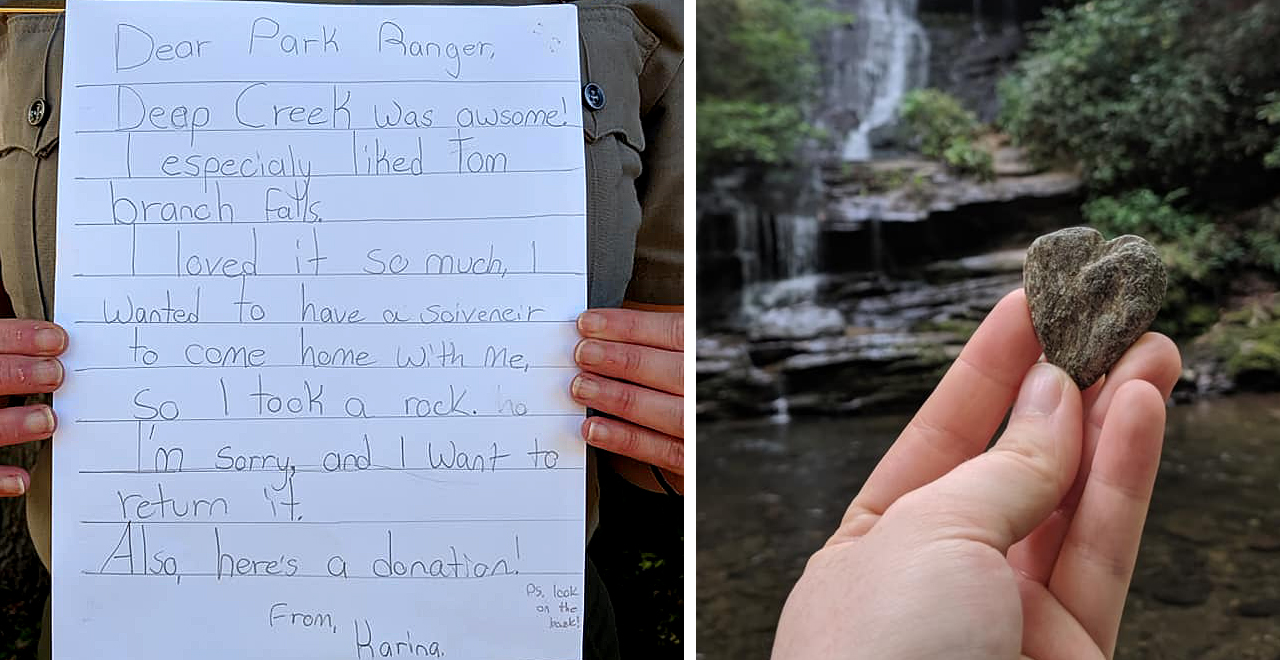 Dear Park Ranger,
Deep Creek was awsome!
I especialy liked Tom
branch falls.
I loved it so much, I
wanted to have a soiveneir
to come home with me,
so I took a rock. ho
I'm sorry, and I want to
return it.
Also, here's a donation!
From,
Karina.
Ps, look
on the
back!